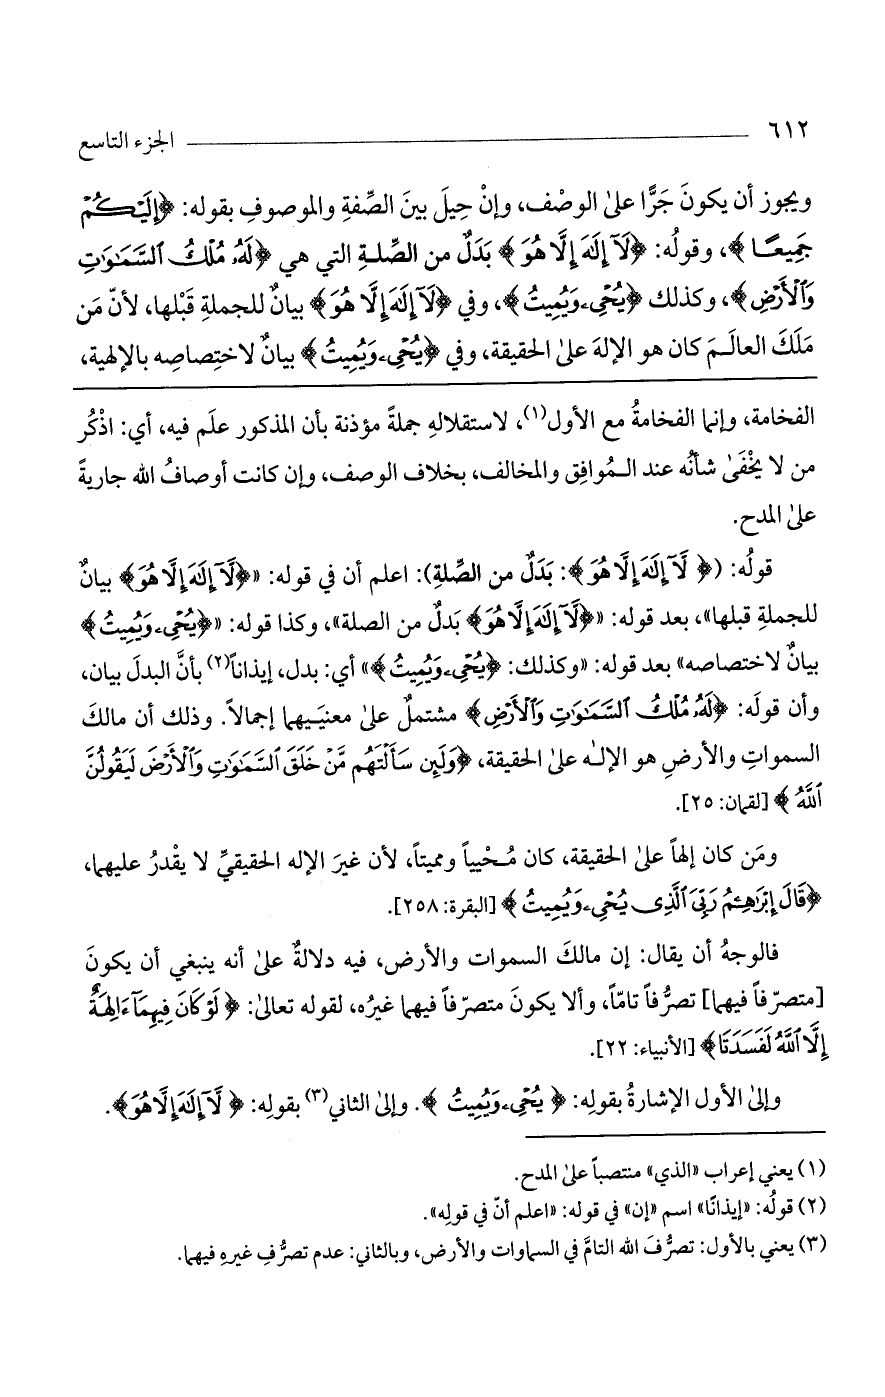 ٦١٢ الجزء التاسع
ويجوز أن يكونَ جَرًّا على الوصْف، وإنْ حِيلَ بينَ الصِّفةِ والموصوفِ بقوله: ﴿إِلَيْكُمْ
جَمِيعًا﴾، وقولُه: ﴿لَآ إِلَٰهَ إِلَّا هُوَ﴾ بَدَلٌ من الصِّلةِ التي هي ﴿لَهُۥ مُلْكُ ٱلسَّمَٰوَٰتِ
وَٱلْأَرْضِ﴾، وكذلك ﴿يُحْىِۦ وَيُمِيتُ﴾، وفي ﴿لَآ إِلَٰهَ إِلَّا هُوَ﴾ بيانٌ للجملةِ قَبْلها، لأنّ مَن
مَلَكَ العالَـمَ كان هو الإلهَ على الحقيقة، وفي ﴿يُحْىِۦ وَيُمِيتُ﴾ بيانٌ لاختِصاصِه بالإلهية،
الفخامة، وإنما الفخامةُ مع الأول(١)، لاستقلالهِ جملةً مؤذنة بأن المذكور علَم فيه، أي: اذْكُر
من لا يخْفَى شأنُه عند الـمُوافِق والمخالف، بخلاف الوصف، وإن كانت أوصافُ الله جاريةً
على المدح.
قولُه: (﴿لَآ إِلَٰهَ إِلَّا هُوَ﴾: بَدَلٌ من الصِّلةِ): اعلم أن في قوله: «﴿لَآ إِلَٰهَ إِلَّا هُوَ﴾ بيانٌ
للجملةِ قبلها»، بعد قوله: «﴿لَآ إِلَٰهَ إِلَّا هُوَ﴾ بَدلٌ من الصلة»، وكذا قوله: «﴿يُحْىِۦ وَيُمِيتُ﴾
بيانٌ لاختصاصه» بعد قوله: «وكذلك: ﴿يُحْىِۦ وَيُمِيتُ﴾» أي: بدل، إيذاناً(٢) بأنَّ البدلَ بيان،
وأن قولَه: ﴿لَهُۥ مُلْكُ ٱلسَّمَٰوَٰتِ وَٱلْأَرْضِ﴾ مشتملٌ على معنيَـيهما إجمالاً. وذلك أن مالكَ
السمواتِ والأرضِ هو الإلٰه على الحقيقة، ﴿وَلَئِن سَأَلْتَهُم مَّنْ خَلَقَ ٱلسَّمَٰوَٰتِ وَٱلْأَرْضَ لَيَقُولُنَّ
ٱللَّهُ﴾ [لقمان: ٢٥].
ومَن كان إلهاً على الحقيقة، كان مُـحْيياً ومميتاً، لأن غيرَ الإله الحقيقيِّ لا يقْدرُ عليهما،
﴿قَالَ إِبْرَٰهِـۧمُ رَبِّىَ ٱلَّذِى يُحْىِۦ وَيُمِيتُ﴾ [البقرة: ٢٥٨].
فالوجهُ أن يقال: إن مالكَ السموات والأرض، فيه دلالةٌ على أنه ينبغي أن يكونَ
[متصرّفاً فيهما] تصرُّفاً تامّاً، وألا يكونَ متصرّفاً فيهما غيرُه، لقوله تعالى: ﴿لَوْ كَانَ فِيهِمَآ ءَالِهَةٌ
إِلَّا ٱللَّهُ لَفَسَدَتَا﴾ [الأنبياء: ٢٢].
وإلى الأول الإشارةُ بقولِه: ﴿يُحْىِۦ وَيُمِيتُ﴾. وإلى الثاني(٣) بقولِه: ﴿لَآ إِلَٰهَ إِلَّا هُوَ﴾.
(١) يعني إعراب «الذي» منتصباً على المدح.
(٢) قولُه: «إيذانًا» اسم «إن» في قوله: «اعلم أنّ في قولِه».
(٣) يعني بالأول: تصرُّفَ الله التامَّ في السماوات والأرض، وبالثاني: عدم تصرُّفِ غيرهِ فيهما.